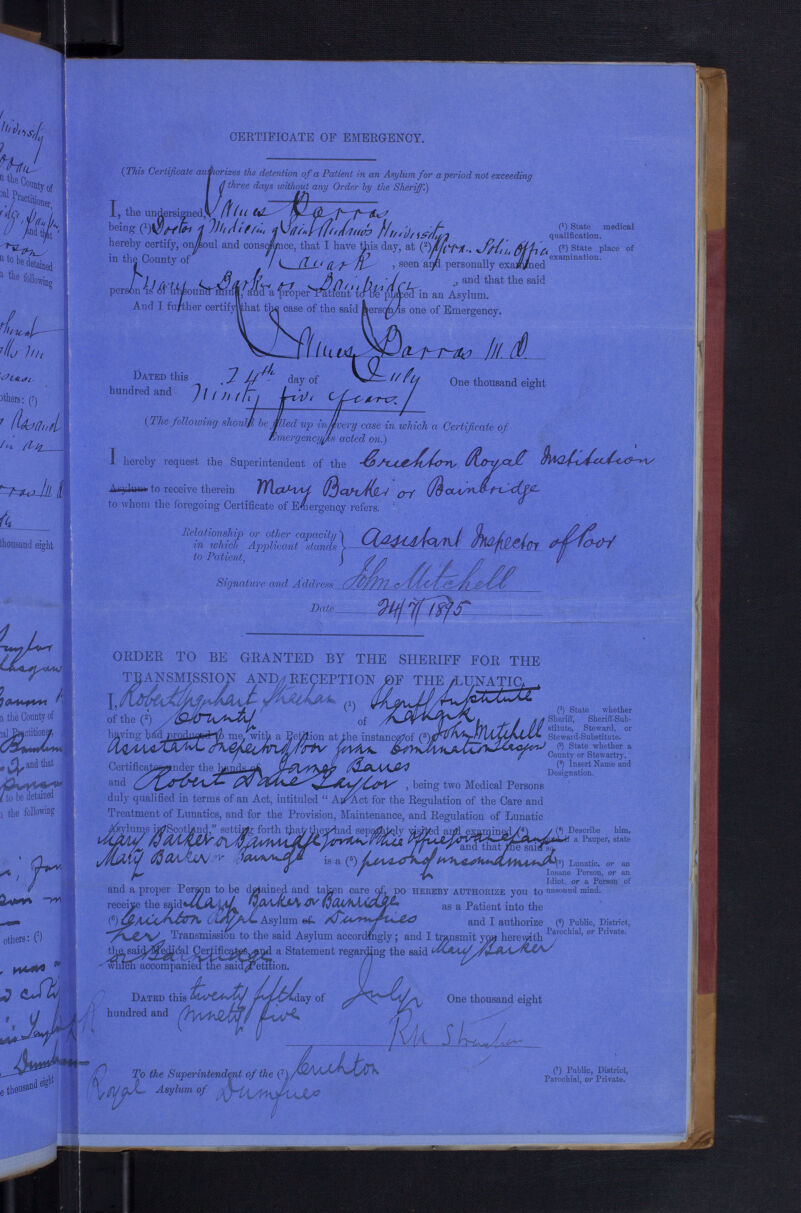 CERTIFICATE OF EMERGENCY.
(This Certificate authorizes the detention of a Patient in an Asylum for a period not exceeding
three days without any Order by the Sheriff.)
I, the undersigned, James Barras
being (¹) Doctor of Medicine of Saint Andrews University
hereby certify, on soul and conscience, that I have this day, at (²) Govan Police Office
in the County of Lanark, seen and personally examined
Mary Barker or Bainbridge, and that the said
person is of unsound mind, and a proper Patient to be placed in an Asylum.
And I further certify that the case of the said person is one of Emergency.
James Barras M D
(¹) State medical
qualification.
(²) State place of
examination.
DATED this 24th day of July One thousand eight
hundred and Ninety five years.
(The following should be filled up in every case in which a Certificate of
Emergency is acted on.)
I hereby request the Superintendent of the Crichton Royal Institution
Asylum to receive therein Mary Barker or Bainbridge
to whom the foregoing Certificate of Emergency refers.
Relationship or other capacity
in which Applicant stands
to Patient,
Assistant Inspector of Poor
Signature and Address John Mitchell
Date 24/7/1895
ORDER TO BE GRANTED BY THE SHERIFF FOR THE
TRANSMISSION AND RECEPTION OF THE LUNATIC.
I, Robert Urquhart Strachan (¹) Sheriff Substitute
of the (²) County of Lanark
having had produced to me, with a Petition at the instance of (³) John Mitchell
Assistant Inspector of Poor Govan Combination Glasgow
Certificates under the hands of James Barras
and Robert Dale Taylor, being two Medical Persons
duly qualified in terms of an Act, intituled "An Act for the Regulation of the Care and
Treatment of Lunatics, and for the Provision, Maintenance, and Regulation of Lunatic
Asylums in Scotland," setting forth that they had separately visited and examined (⁴)
Mary Barker or Bainbridge Govan Police Office Govan a Pauper
and that the said
Mary Barker or Bainbridge is a (⁵) person of unsound mind
and a proper Person to be detained and taken care of, DO HEREBY AUTHORIZE you to
receive the said Mary Barker or Bainbridge as a Patient into the
(⁶) Crichton Royal Asylum of Dumfries and I authorize
her Transmission to the said Asylum accordingly; and I transmit you herewith
the said Medical Certificates, and a Statement regarding the said Mary Barker
or Bainbridge
which accompanied the said Petition.
(¹) State whether
Sheriff, Sheriff-Sub-
stitute, Steward, or
Steward-Substitute.
(²) State whether a
County or Stewartry.
(³) Insert Name and
Designation.
(⁴) Describe him,
if a Pauper, state
so.
(⁵) Lunatic, or an
Insane Person, or an
Idiot, or a Person of
unsound mind.
(⁶) Public, District,
Parochial, or Private.
DATED this twenty fifth day of July One thousand eight
hundred and ninety five
R U Strachan
To the Superintendent of the (⁷) Crichton
Royal Asylum of Dumfries
(⁷) Public, District,
Parochial, or Private.
University
n the County of
and that
n to be detained
n the following
others: (²)
thousand eight
n the County of
and that
to be detained
n the following
others: (²)
e thousand eight